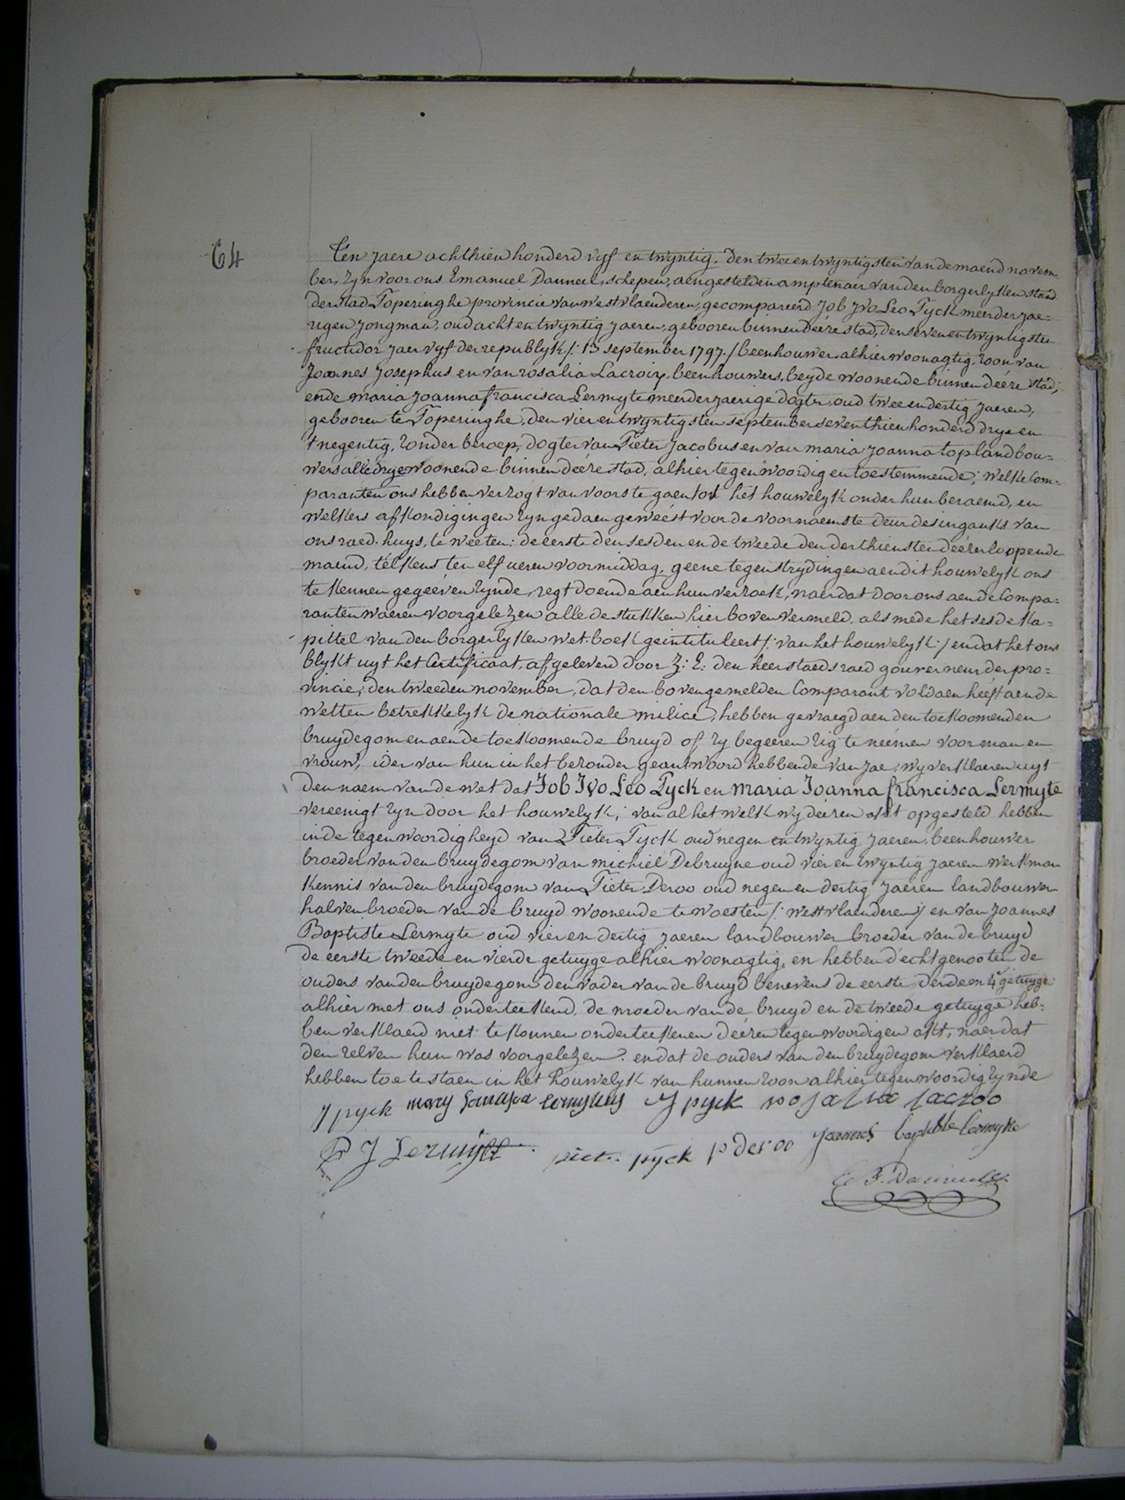 64
Ten jaere achthien honderd vyf en twyntig, den tweeentwyntigsten van de maend novem-
ber, zyn voor ons Emanuel Danneel, schepen, aengestelden amptenaer van den borgerlyken stand
der stad Poperinghe, provincie van westvlaenderen, gecompareerd Job Jvo Leo Pyck meerderjae-
rigen jongman, oud acht en twyntig jaeren, gebooren binnen deere stad, den sevenentwyntigsten
fructidor jaer vyf der republyk /: 13 september 1797 :/ beenhouwer alhier woonagtig, zoon van
Joannes Josephus en van rosalia Lacroix, beenhouwers, beyde woonende binnen deere stad;
ende maria Joanna francisca Lermyte meerderjaerige dogter, oud twee en dertig jaeren,
gebooren te Poperinghe, den vier en twyntigsten september seventhien honderd drye en
tnegentig, zonder beroep, dogter van Pieter Jacobus en van maria joanna top landbou-
wers alle drye woonende binnen deere stad, alhier tegenwoordig en toestemmende; welke Com-
paranten ons hebben verzogt van voorste gaen tot het houwelyk onder hun beraemd, en
welkers afkondigingen zyn gedaen geweest voor de voornaemste deur des ingauks van
ons raed-huys, te weeten: de eerste den sesden en de tweede den derthiensten deezer loopende
maend, telkens ten elf ueren voormiddag, geene tegenstrydingen aen dit houwelyk ons
te kennen gegeeven zynde, regt doende aen hun verzoek, naerdat door ons aen de Compa-
ranten waeren voorgelezen alle de stukken hier boven vermeld, als mede het sesde Ka-
pittel van den borgerlyken wet-boek geintituleert /: van het houwelyk :/ en dat het ons
blykt uyt het Certificaat, afgeleverd door Z: E: den heer staedsraed gouverneur der pro-
vincie, den tweeden november, dat den bovengemelden Comparant voldaen heeft aen de
wetten betrekkelyk de nationale milice, hebben gevraegd aen den toekoomenden
bruydegom en aen de toekoomende bruyd of zy begeeren zig te neémen voor man en
vrouw, ider van hun in het bezonder geantwoord hebbende van jae, wy verklaeren uyt
den naem van de wet dat Job Jvo Leo Pyck en Maria Joanna francisca Lermyte
vereenigt zyn door het houwelyk; van al het welk wy deéren akt opgesteld hebben
in de tegenwoordigheyd van Pieter Pyck oud negen en twyntig jaeren, beenhouwer
broeder van den bruydegom van michiel Debruyne oud vier en twyntig jaeren werkman
Kennis van den bruydegom van Pieter Deroo oud negen en dertig jaeren landbouwer
halven broeder van de bruyd woonende te woesten /: westvlaenderen :/ en van Joannes
Baptiste Lermyte oud vier en dertig jaeren landbouwer broeder van de bruyd
de eerste tweede en vierde getuyge alhier woonagtig, en hebben d'echtgenooten de
ouders van den bruydegom den vader van de bruyd benevens de eerste derde en 4e getuyge
alhier met ons onderteekend, de moeder van de bruyd en de tweede getuyge heb-
ben verklaerd niet te konnen onderteekenen deéren tegenwoordigen akt, naer dat
den zelven hun was voorgelezen. en dat de ouders van den bruydegom verklaerd
hebben toe te staen in het houwelyk van hunnen zoon alhier tegenwoordig zynde
J pyck J pyck rosalia lacroo
P J Lermijtt piet. pyck p Deroo Joannes baptiste lermyte
E. F. Danneel